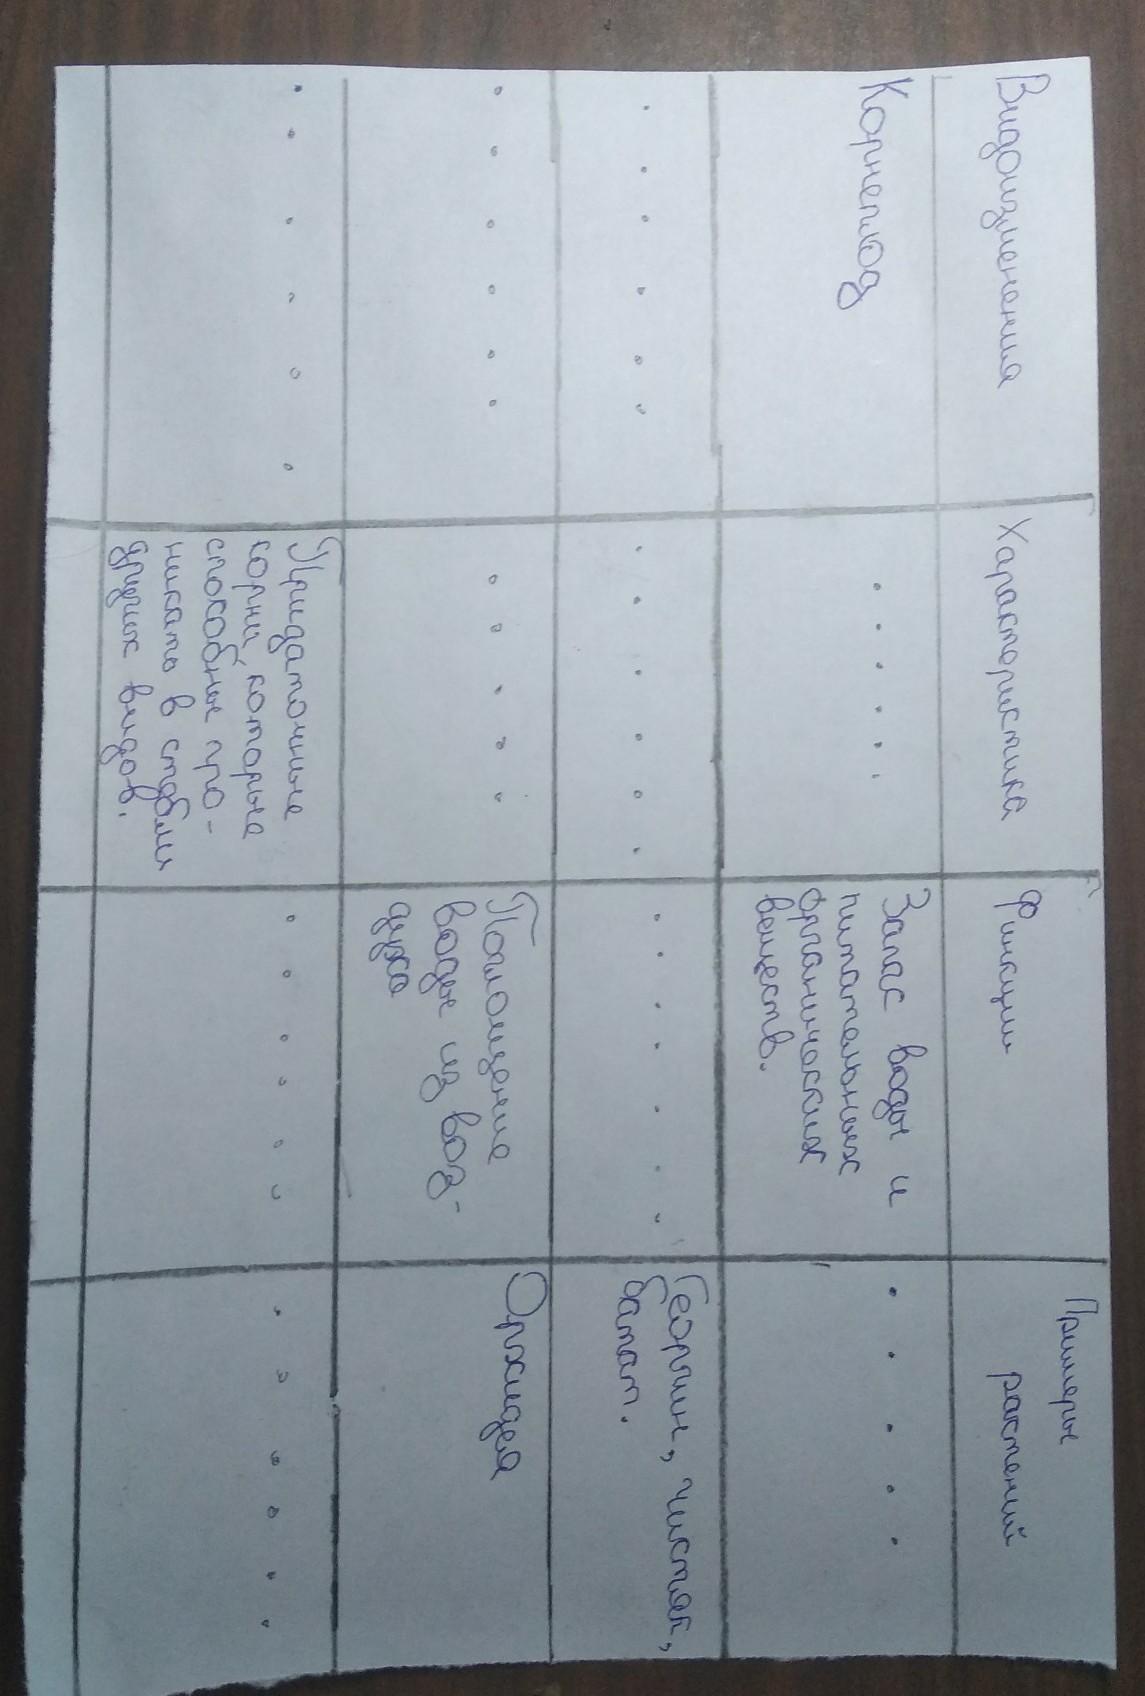 Видоизменения
Характеристика
Функции
Примеры
растений
Корнеплод
. . . . . .
Запас воды и
питательных
органических
веществ.
. . . . .
. . . . . .
. . . . . .
. . . . . . .
Георгин, чистяк,
батат.
. . . . . .
. . . . .
Поглощение
воды из воз-
духа
Орхидея
. . . . . .
Придаточные
корни, которые
способные про-
никать в стебли
других видов.
. . . . . .
. . . . . .